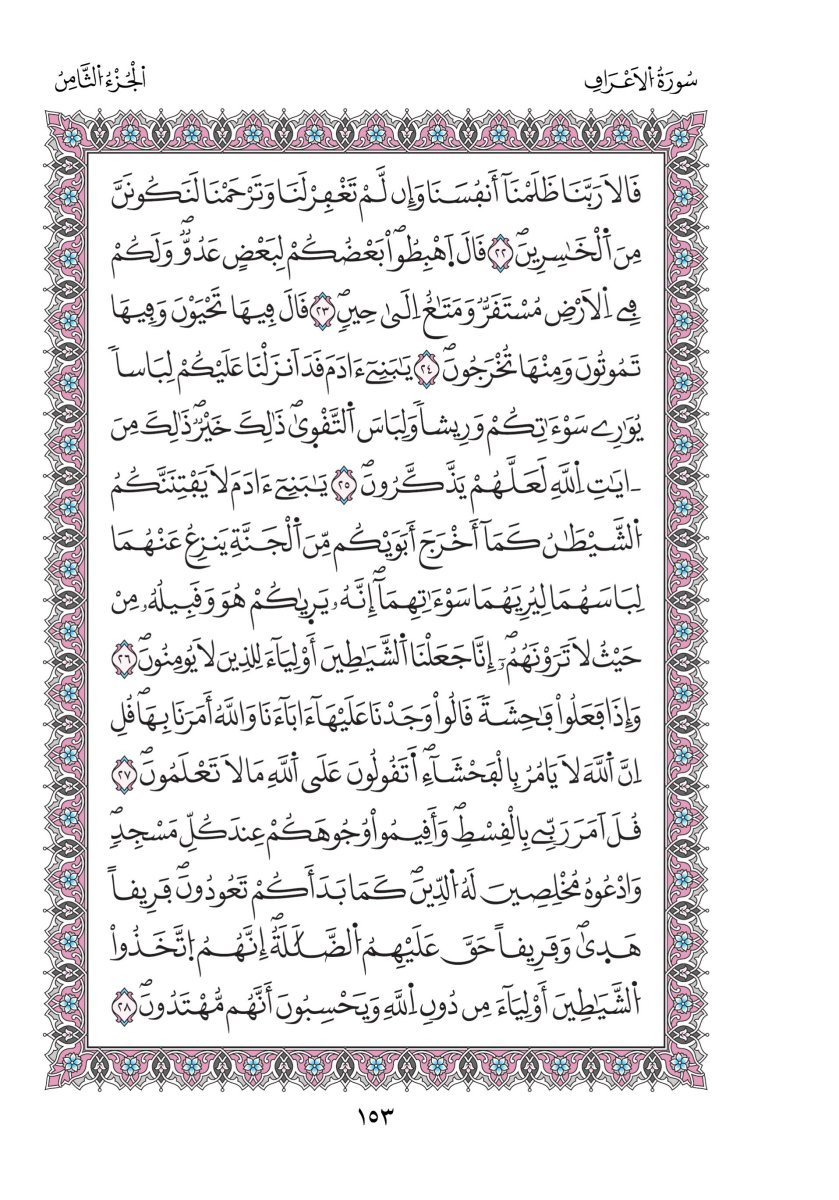 سُورَةُ اُ۬لَاعْرَافِ
اَ۬لْجُزْءُ اُ۬لثَّامِنُ
قَالَا رَبَّنَا ظَلَمْنَآ أَنفُسَنَا وَإِن لَّمْ تَغْفِرْ لَنَا وَتَرْحَمْنَا لَنَكُونَنَّ
مِنَ اَ۬لْخَٰسِرِينَۖ ٢٢ قَالَ اَ۪هْبِطُواْۖ بَعْضُكُمْ لِبَعْضٍ عَدُوّٞۖ وَلَكُمْ
فِے اِ۬لَارْضِ مُسْتَقَرّٞ وَمَتَٰعٌ اِلَىٰ حِينٖۖ ٢٣ قَالَ فِيهَا تَحْيَوْنَ وَفِيهَا
تَمُوتُونَ وَمِنْهَا تُخْرَجُونَۖ ٢٤ يَٰبَنِےٓ ءَادَمَ قَدَ اَنزَلْنَا عَلَيْكُمْ لِبَاساٗ
يُوَٰرِے سَوْءَٰتِكُمْ وَرِيشاٗ وَلِبَاسَ اَ۬لتَّقْو۪ىٰۖ ذَٰلِكَ خَيْرٞۖ ذَٰلِكَ مِنَ
اٰيَٰتِ اِ۬للَّهِ لَعَلَّهُمْ يَذَّكَّرُونَۖ ٢٥ يَٰبَنِےٓ ءَادَمَ لَا يَفْتِنَنَّكُمُ
اُ۬لشَّيْطَٰنُ كَمَآ أَخْرَجَ أَبَوَيْكُم مِّنَ اَ۬لْجَنَّةِ يَنزِعُ عَنْهُمَا
لِبَاسَهُمَا لِيُرِيَهُمَا سَوْءَٰتِهِمَآۖ إِنَّهُۥ يَر۪يٰكُمْ هُوَ وَقَبِيلُهُۥ مِنْ
حَيْثُ لَا تَرَوْنَهُمُۥٓۖ إِنَّا جَعَلْنَا اَ۬لشَّيَٰطِينَ أَوْلِيَآءَ لِلذِينَ لَا يُومِنُونَۖ ٢٦
وَإِذَا فَعَلُواْ فَٰحِشَةٗ قَالُواْ وَجَدْنَا عَلَيْهَآ ءَابَآءَنَا وَاللَّهُ أَمَرَنَا بِهَاۖ قُلِ
اِنَّ اَ۬للَّهَ لَا يَامُرُ بِالْفَحْشَآءِۖ اَتَقُولُونَ عَلَى اَ۬للَّهِ مَا لَا تَعْلَمُونَۖ ٢٧
قُلَ اَمَرَ رَبِّے بِالْقِسْطِۖ وَأَقِيمُواْ وُجُوهَكُمْ عِندَ كُلِّ مَسْجِدٖۖ
وَادْعُوهُ مُخْلِصِينَ لَهُ اُ۬لدِّينَۖ كَمَا بَدَأَكُمْ تَعُودُونَۖ فَرِيقاً
هَد۪ىٰۖ وَفَرِيقاً حَقَّ عَلَيْهِمُ اُ۬لضَّلَٰلَةُۖ إِنَّهُمُ اُ۪تَّخَذُواْ
اُ۬لشَّيَٰطِينَ أَوْلِيَآءَ مِن دُونِ اِ۬للَّهِ وَيَحْسِبُونَ أَنَّهُم مُّهْتَدُونَۖ ٢٨
١٥٣